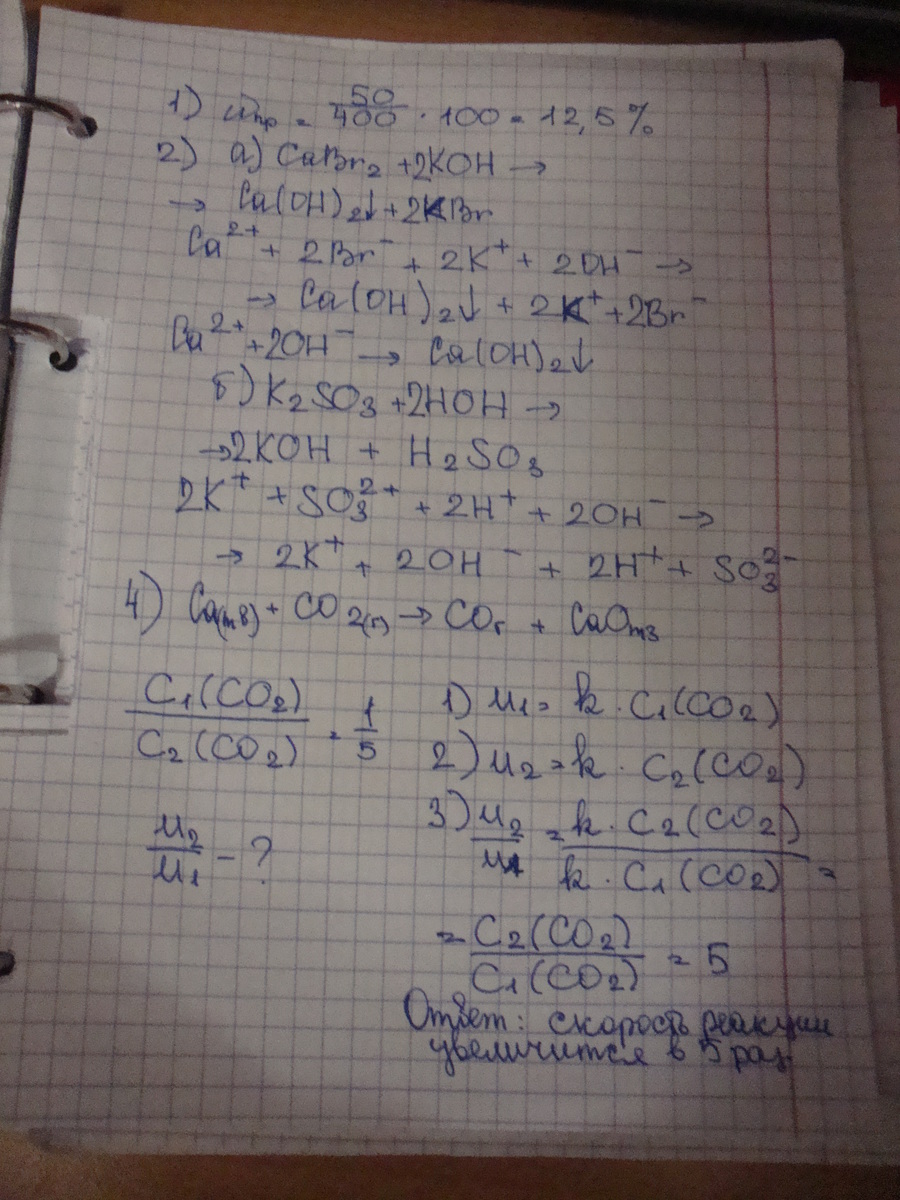 1) ω пр = 50/400 · 100 = 12,5%
2) а) CaBr₂ + 2KOH →
→ Ca(OH)₂↓ + 2KBr
Ca²⁺ + 2Br⁻ + 2K⁺ + 2OH⁻ →
→ Ca(OH)₂↓ + 2K⁺ + 2Br⁻
Ca²⁺ + 2OH⁻ → Ca(OH)₂↓
б) K₂SO₃ + 2HOH →
→ 2KOH + H₂SO₃
2K⁺ + SO₃²⁺ + 2H⁺ + 2OH⁻ →
→ 2K⁺ + 2OH⁻ + 2H⁺ + SO₃²⁻
4) Ca(тв) + CO₂(г) → COг + CaOтв
C₁(CO₂)/C₂(CO₂) = 1/5
u₂/u₁ – ?
1) u₁ = k · C₁(CO₂)
2) u₂ = k · C₂(CO₂)
3) u₂/u₁ = k · C₂(CO₂)/k · C₁(CO₂) =
= C₂(CO₂)/C₁(CO₂) = 5
Ответ: скорость реакции
увеличится в 5 раз.